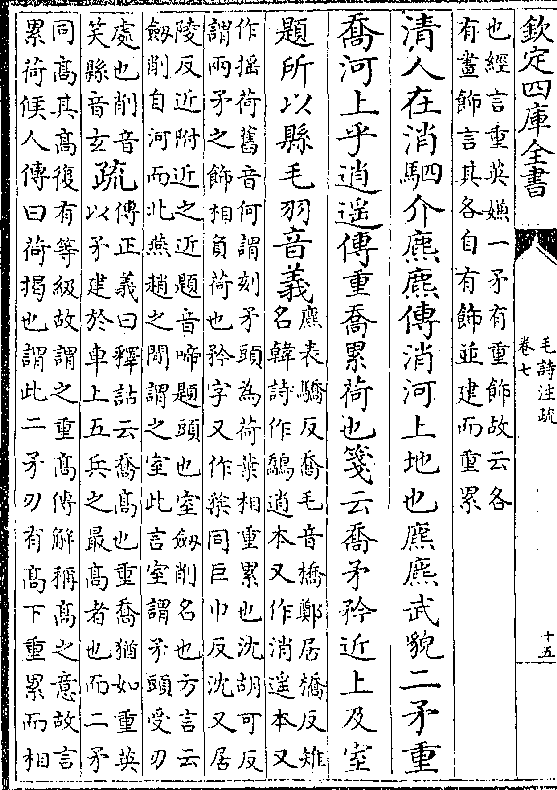 欽定四庫全書
毛詩注疏
卷七
十五
也經言重英嫌一矛有重飾故云各
有畫飾言其各自有飾並建而重累
清人在消駟介麃麃傳消河上地也麃麃武貌二矛重
喬河上乎逍遥傳重喬累荷也箋云喬矛矜近上及室
題所以縣毛羽音義
麃表驕反喬毛音橋鄭居橋反雉
名韓詩作鷮逍本又作消遥本又
作揺荷舊音何謂刻矛頭為荷葉相重累也沈胡可反
謂兩矛之飾相負荷也矜字又作𥎊同巨巾反沈又居
陵反近附近之近題音啼題頭也室劒削名也方言云
劒削自河而北燕趙之間謂之室此言室謂矛頭受刃
處也削音
笑縣音玄
疏
傳正義曰釋詁云喬髙也重喬猶如重英
以矛建於車上五兵之最髙者也而二矛
同髙其髙復有等級故謂之重髙傳解稱髙之意故言
累荷候人傳曰荷揭也謂此二矛刃有髙下重累而相